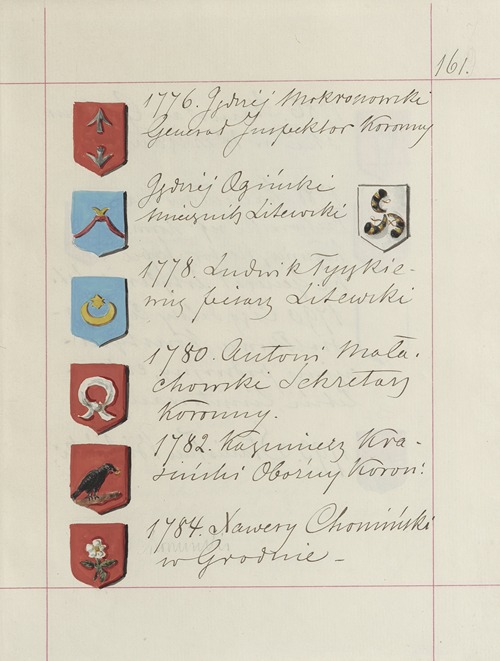 161.
1776. Jędrzéj Mokronowski
Generał Inspektor Koronny
Jędrzéj Ogiński
Miecznik Litewski
1778. Ludwik Tyszkie-
wicz pisarz Litewski
1780. Antoni Mała.
chowski Sekretarz
Koronny.
1782. Kazimierz Kra-
siński Oboźny Koron:
1784. Xawery Chomiński
w Grodnie –